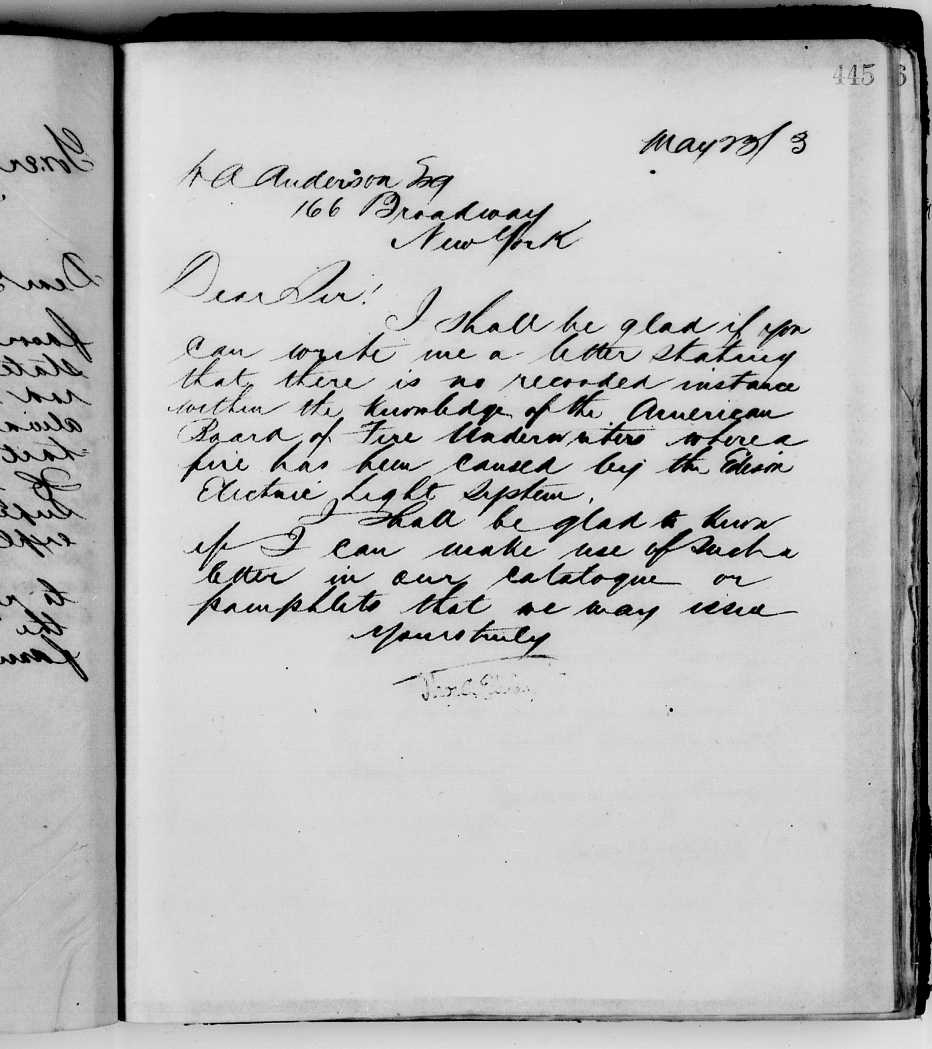 445
May 23/ 3
A Anderson Esq
166 Broadway
New York
Dear Sir!
I shall be glad if you
can write me a letter stating
that there is no recorded instance
within the knowledge of the American
Board of Fire Underwriters where a
fire has been caused by the Edison
Electric Light System.
I shall be glad to know
if I can make use of such a
letter in our catalogue or
pamphlets that we may issue
Yours truly